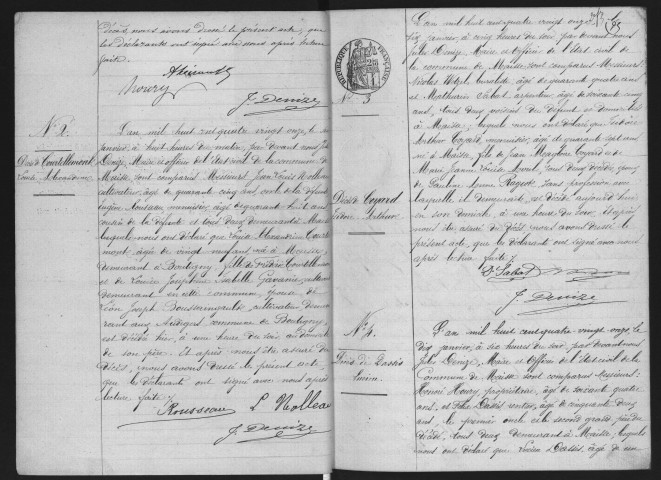 Décès nous avons dressé le présent acte, que
les déclarants ont signé avec nous après lecture
faite.
Houry
J. Denize
N° 2.
Décès de Coutellemont
L'an mil huit cent quatre vingt onze, le
janvier, à huit heures du matin, par devant nous Jules
Denize, Maire et officier de l'état civil de la commune de
Maisse, sont comparus Messieurs Jean Louis
cultivateur, âgé de quarante cinq ans, oncle de la défunte
Eugène Rousseau, menuisier, âgé de quarante huit ans
cousin de la défunte et tous deux demeurants à Maisse
lesquels nous ont déclaré que Louise Alexandrine Coutelle-
mont, âgée de vingt neuf ans, née à Maisse
demeurant à Boutigny, fille de Frédéric Coutellemont
et de Louise Joséphine Isabelle
demeurant en cette commune, épouse de
Léon Joseph cultivateur demeu-
rant aux Audigers commune de Boutigny,
est décédée hier, à une heure du soir au domicile
de son père. Et après nous être assuré du
Décès, nous avons dressé le présent acte,
que les déclarants ont signé avec nous après
lecture faite.
Rousseau L. Rolleau
J. Denize
L'an mil huit cent quatre vingt onze, le
dix janvier, à cinq heures du soir, par devant nous
Jules Denize, Maire et Officier de l'état civil de
la commune de Maisse, sont comparus Messieurs
âgé de quarante quatre ans
et Mathurin Sabat, âgé de soixante cinq
ans, tous deux voisins du défunt et demeurants
à Maisse; lesquels nous ont déclaré que Isidore
Arthur Coyard, menuisier, âgé de quarante sept ans
né à Maisse, fils de Jean Coyard et de
Marie Jeanne Louise tous deux décédés, époux
de Pauline Ragot, sans profession avec
laquelle il demeurait, est décédé aujourd'hui
en son domicile, à une heure du soir. Et après
nous être assuré du Décès nous avons dressé le
présent acte, que les déclarants ont signé avec nous
après lecture faite.
N° 3
RÉPUBLIQUE FRANÇAISE
Décès de Coyard
Isidore Arthur
Sabat
J. Denize
N° 4.
Décès de Dassis
Lucien
L'an mil huit cent quatre vingt onze, le
dix janvier, à six heures du soir, par devant nous
Jules Denize, Maire et Officier de l'état civil de la
Commune de Maisse sont comparus Messieurs
Honoré Houry propriétaire, âgé de soixante quatre
ans, et Dassis rentier, âgé de cinquante deux
ans, le premier oncle et le second grand père du
décédé, tous deux demeurant à Maisse, lesquels
nous ont déclaré que Lucien Dassis, âgé de six